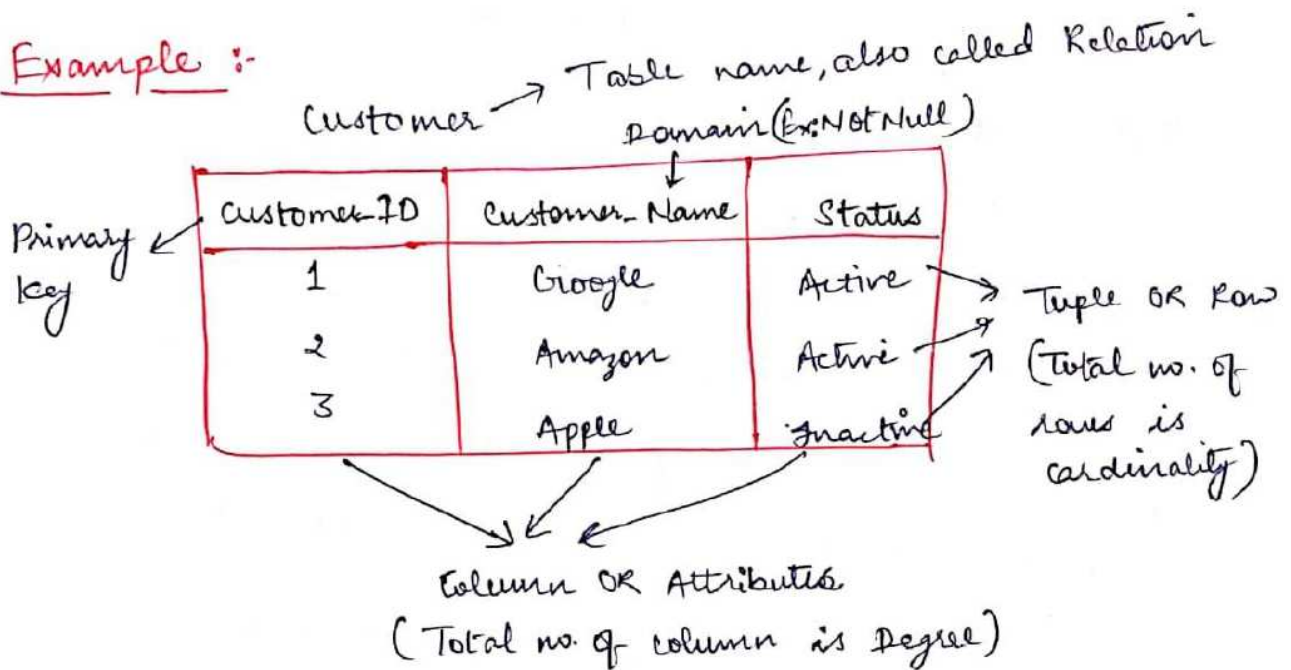 Example :-
Customer → Table name, also called Relation
Domain (Ex: Not Null)
Primary key
Customer_ID Customer_Name Status
1 Google Active
2 Amazon Active
3 Apple Inactive
Tuple OR Row
(Total no. of
rows is
cardinality)
Column OR Attributes
(Total no. of column is Degree)